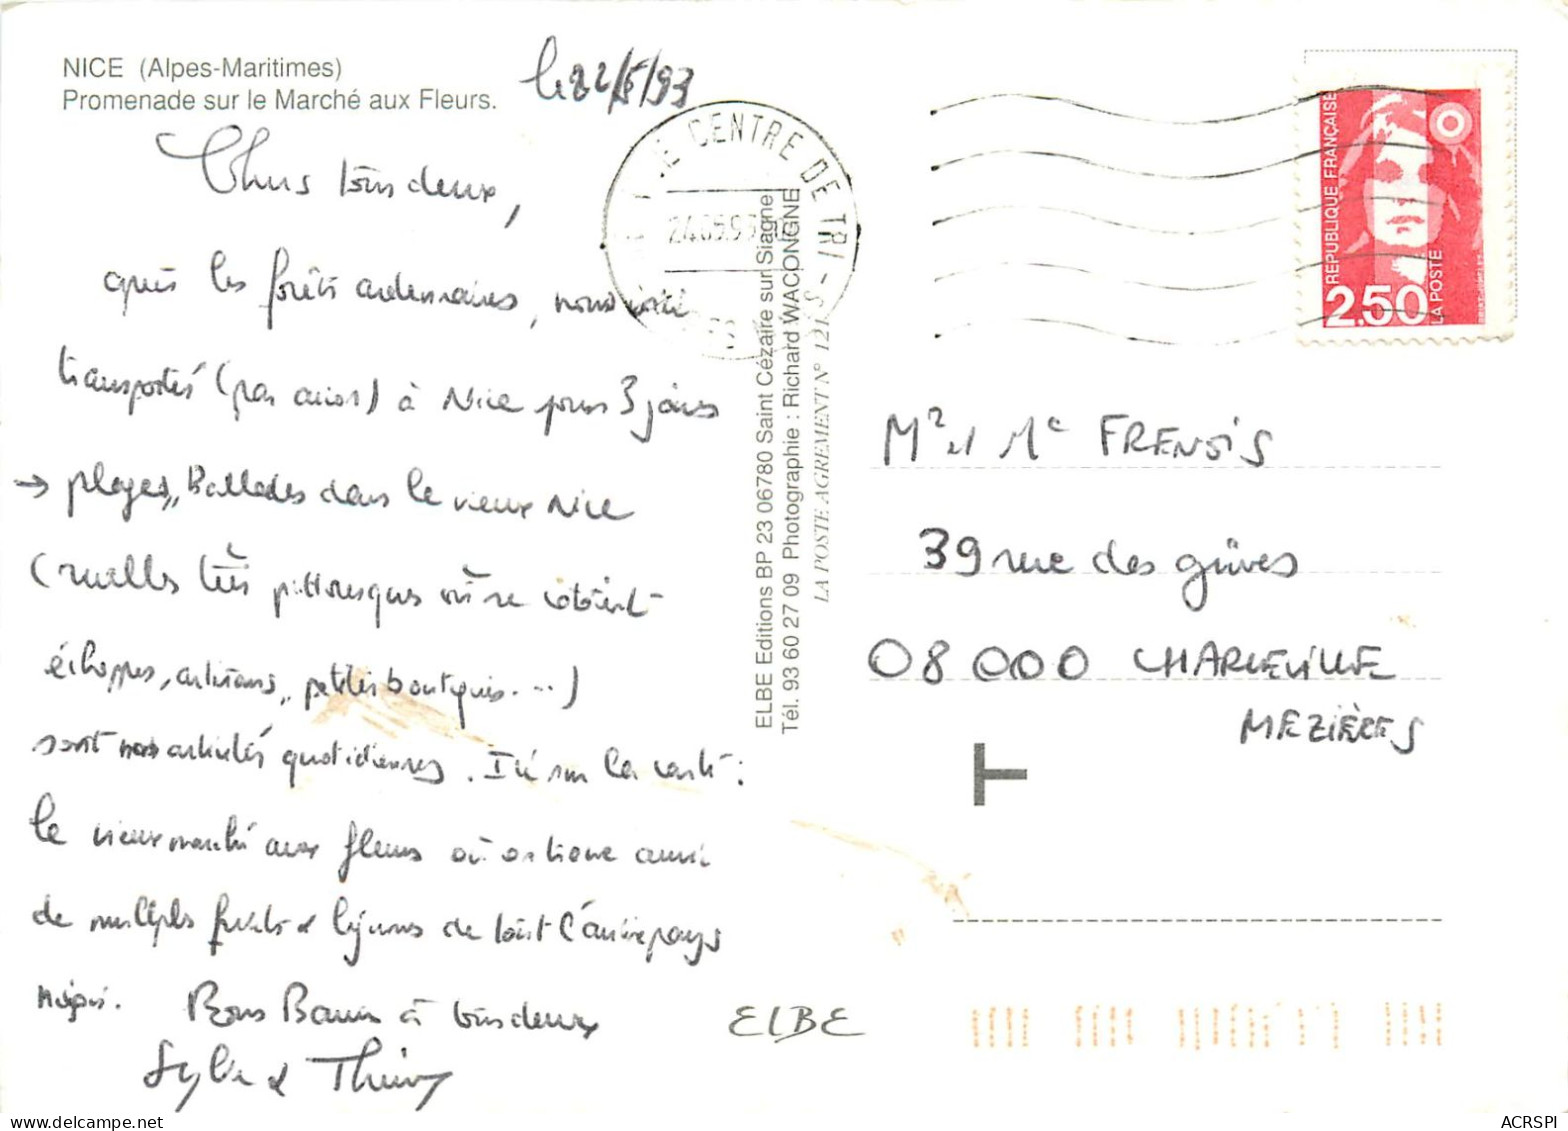 NICE (Alpes-Maritimes)
Promenade sur le Marché aux Fleurs.
le 22/5/93
Chers tous deux,
après les forêts ardennaises, nous voici
transportés (par avion) à Nice pour 3 jours
→ plages, Ballades dans le vieux Nice
(ruelles très pittoresques où se côtoient
échoppes, artisans, petites boutiques...)
sont nos activités quotidiennes. Ici sur la carte :
le vieux marché aux fleurs où on trouve aussi
de multiples fruits & légumes de tout l'arrière pays
niçois. Bons Baisers à tous deux
Sylvie & Thierry
CENTRE DE TRI
24.05.93
ELBE Editions BP 23 06780 Saint Cézaire sur Siagne
Tél. 93 60 27 09 Photographie : Richard WACONGNE
LA POSTE AGREMENT N° 121 S
REPUBLIQUE FRANÇAISE
2.50
LA POSTE
Mr et Me FRENOIS
39 rue des grives
08 000 CHARLEVILLE
MEZIÈRES
T
ELBE
ACRSPI